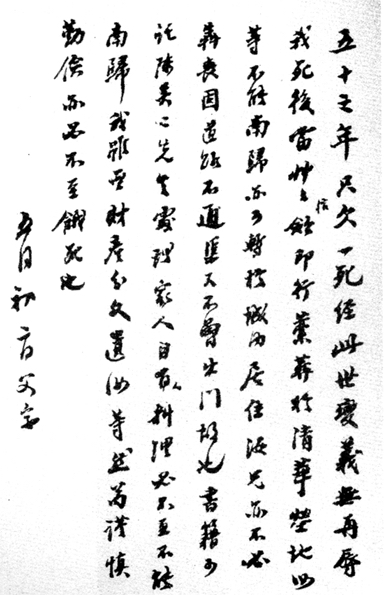 五十之年只欠一死經此世變義無再辱
我死後當艸々棺殮即行藁葬於清華塋地汝
等不能南歸亦可暫於城內居住汝兄亦不必
奔喪因道路不通渠又不曾出門故也書籍可
託陳吳二先生處理家人自有人料理必不至不能
南歸我雖無財產分文遺汝等然苟謹慎
勤儉亦必不至餓死也
五月初二日父字